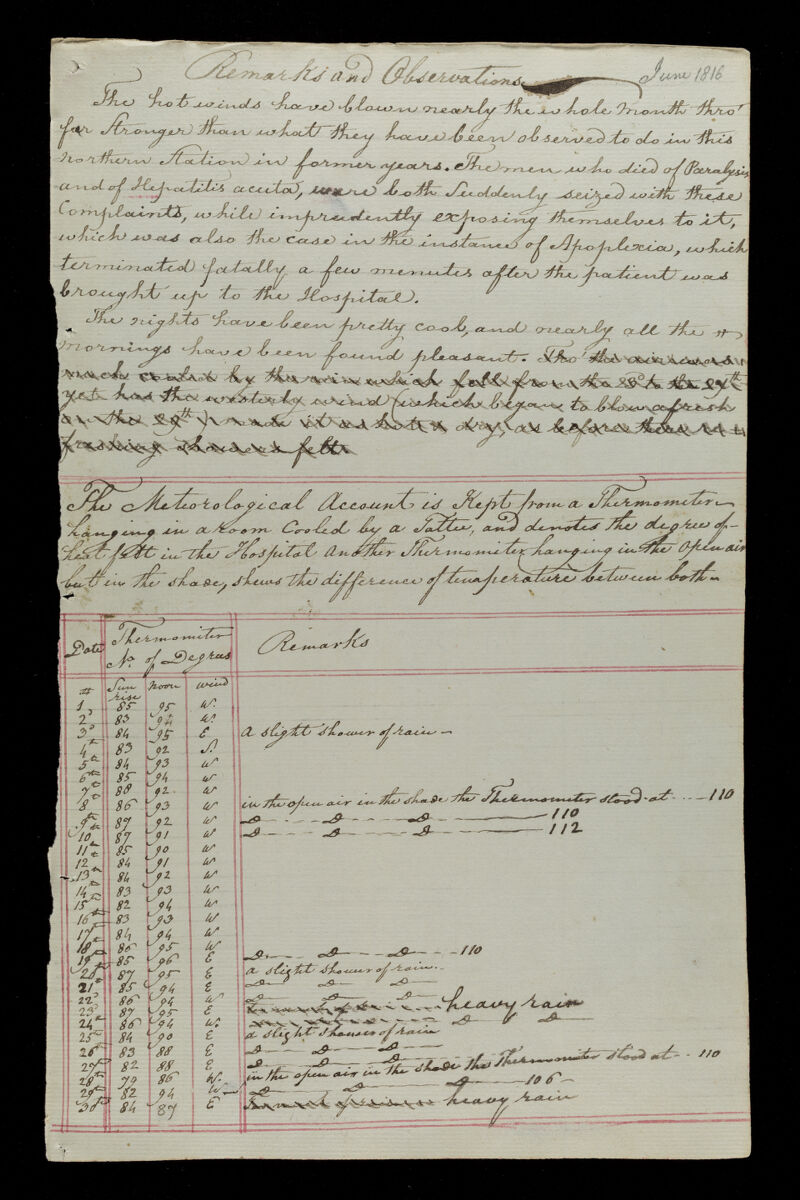 Remarks and Observations June 1816
The hot winds have blown nearly the whole Month thro'
far Stronger than what they have been observed to do in this
Northern Station in former years. The men who died of Paralysis
and of Hepatitis acuta, were both Suddenly seized with these
Complaints, while imprudently exposing themselves to it,
which was also the case in the instance of Apoplexia, which
terminated fatally a few menutes after the patient was
brought up to the Hospital.
The nights have been pretty cool, and nearly all the
mornings have been found pleasant. Tho' the air was
much cooled by the rain which fell from the to the 27th
yet has the westerly wind (which began to blow afresh
on the 29th) made it as hot & dry, as before there
freshing showers fell.
The Meteorological Account is Kept from a Thermometer
hanging in a room Cooled by a Tattie, and denotes the degree of
heat felt in the Hospital Another Thermometer hanging in the Open air
but in the shade, shews the difference of temperature between both
Date Thermometer No. of Degrees Remarks
# Sun rise noon wind
1 85 95 W.
2 83 94 W.
3 84 95 E a slight shower of rain
4th 83 92 S.
5th 84 93 W
6th 85 94 W
7th 88 92 W
8 86 93 W in the open air in the shade the Thermometer stood at 110
9th 87 92 W D D D 110
10 87 91 W D D D 112
11 85 90 W
12 84 91 W
13 84 92 W
14 83 93 W
15 82 94 W
16 83 93 W
17th 84 94 W
18th 86 95 W D D D 110
19th 85 96 E a slight shower of rain
20th 87 95 E D D D
21 85 94 E D D D
22 86 94 W heavy rain
23 87 95 E D D
24th 86 94 W. a slight shower of rain
25th 84 90 E D D D
26th 83 88 E D D D
27th 82 88 E in the open air in the shade the Thermometer stood at 110
28th 79 86 W. D D D 106
29th 82 94 W
30th 84 87 E heavy rain